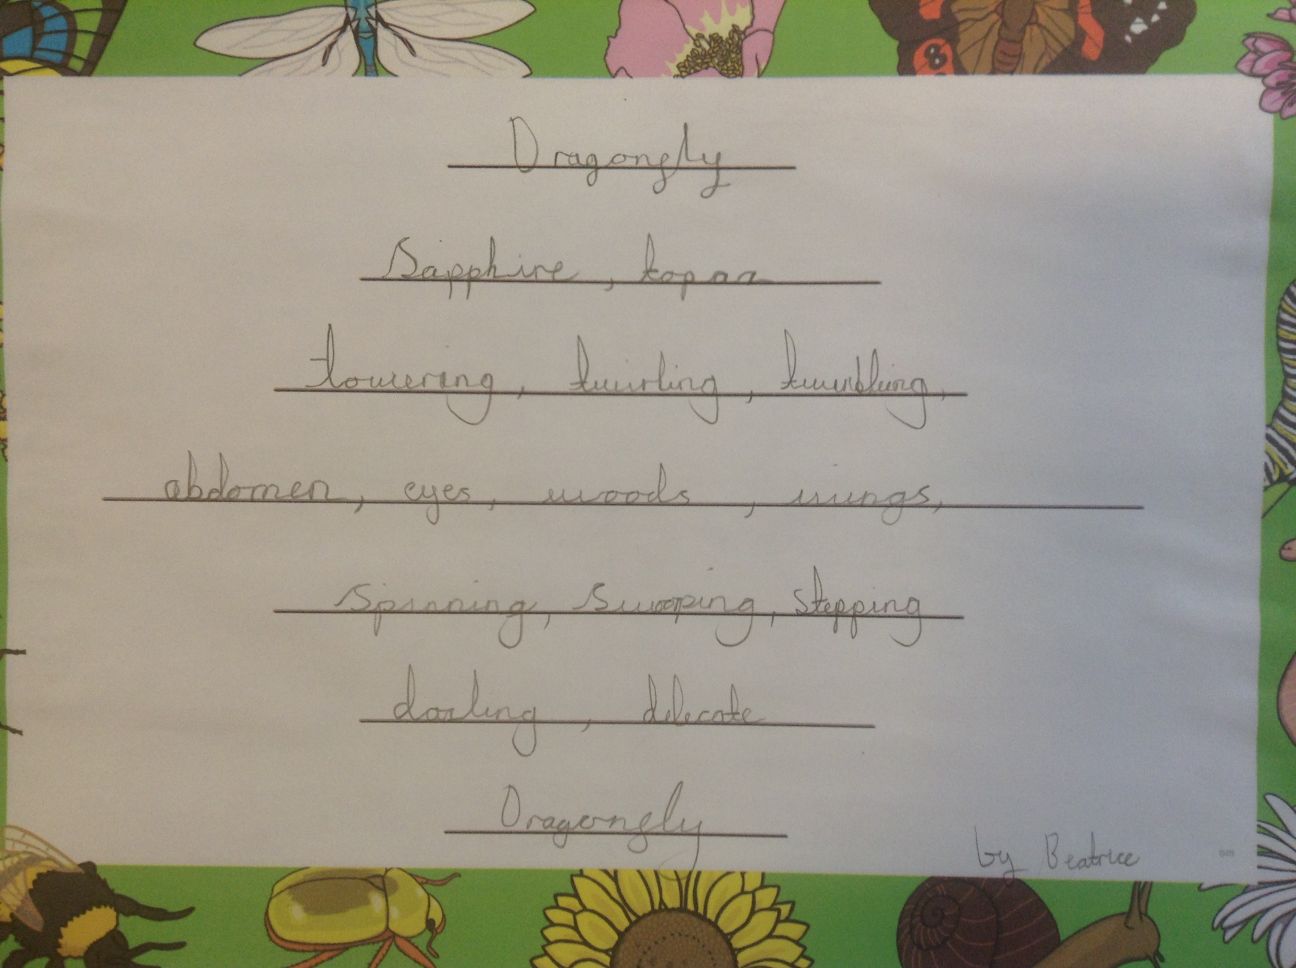 Dragonfly
Sapphire, topaz
towering, twirling, twinkling,
abdomen, eyes, woods, wings,
Spinning, Swooping, stepping
darling, delicate
Dragonfly
by Beatrice